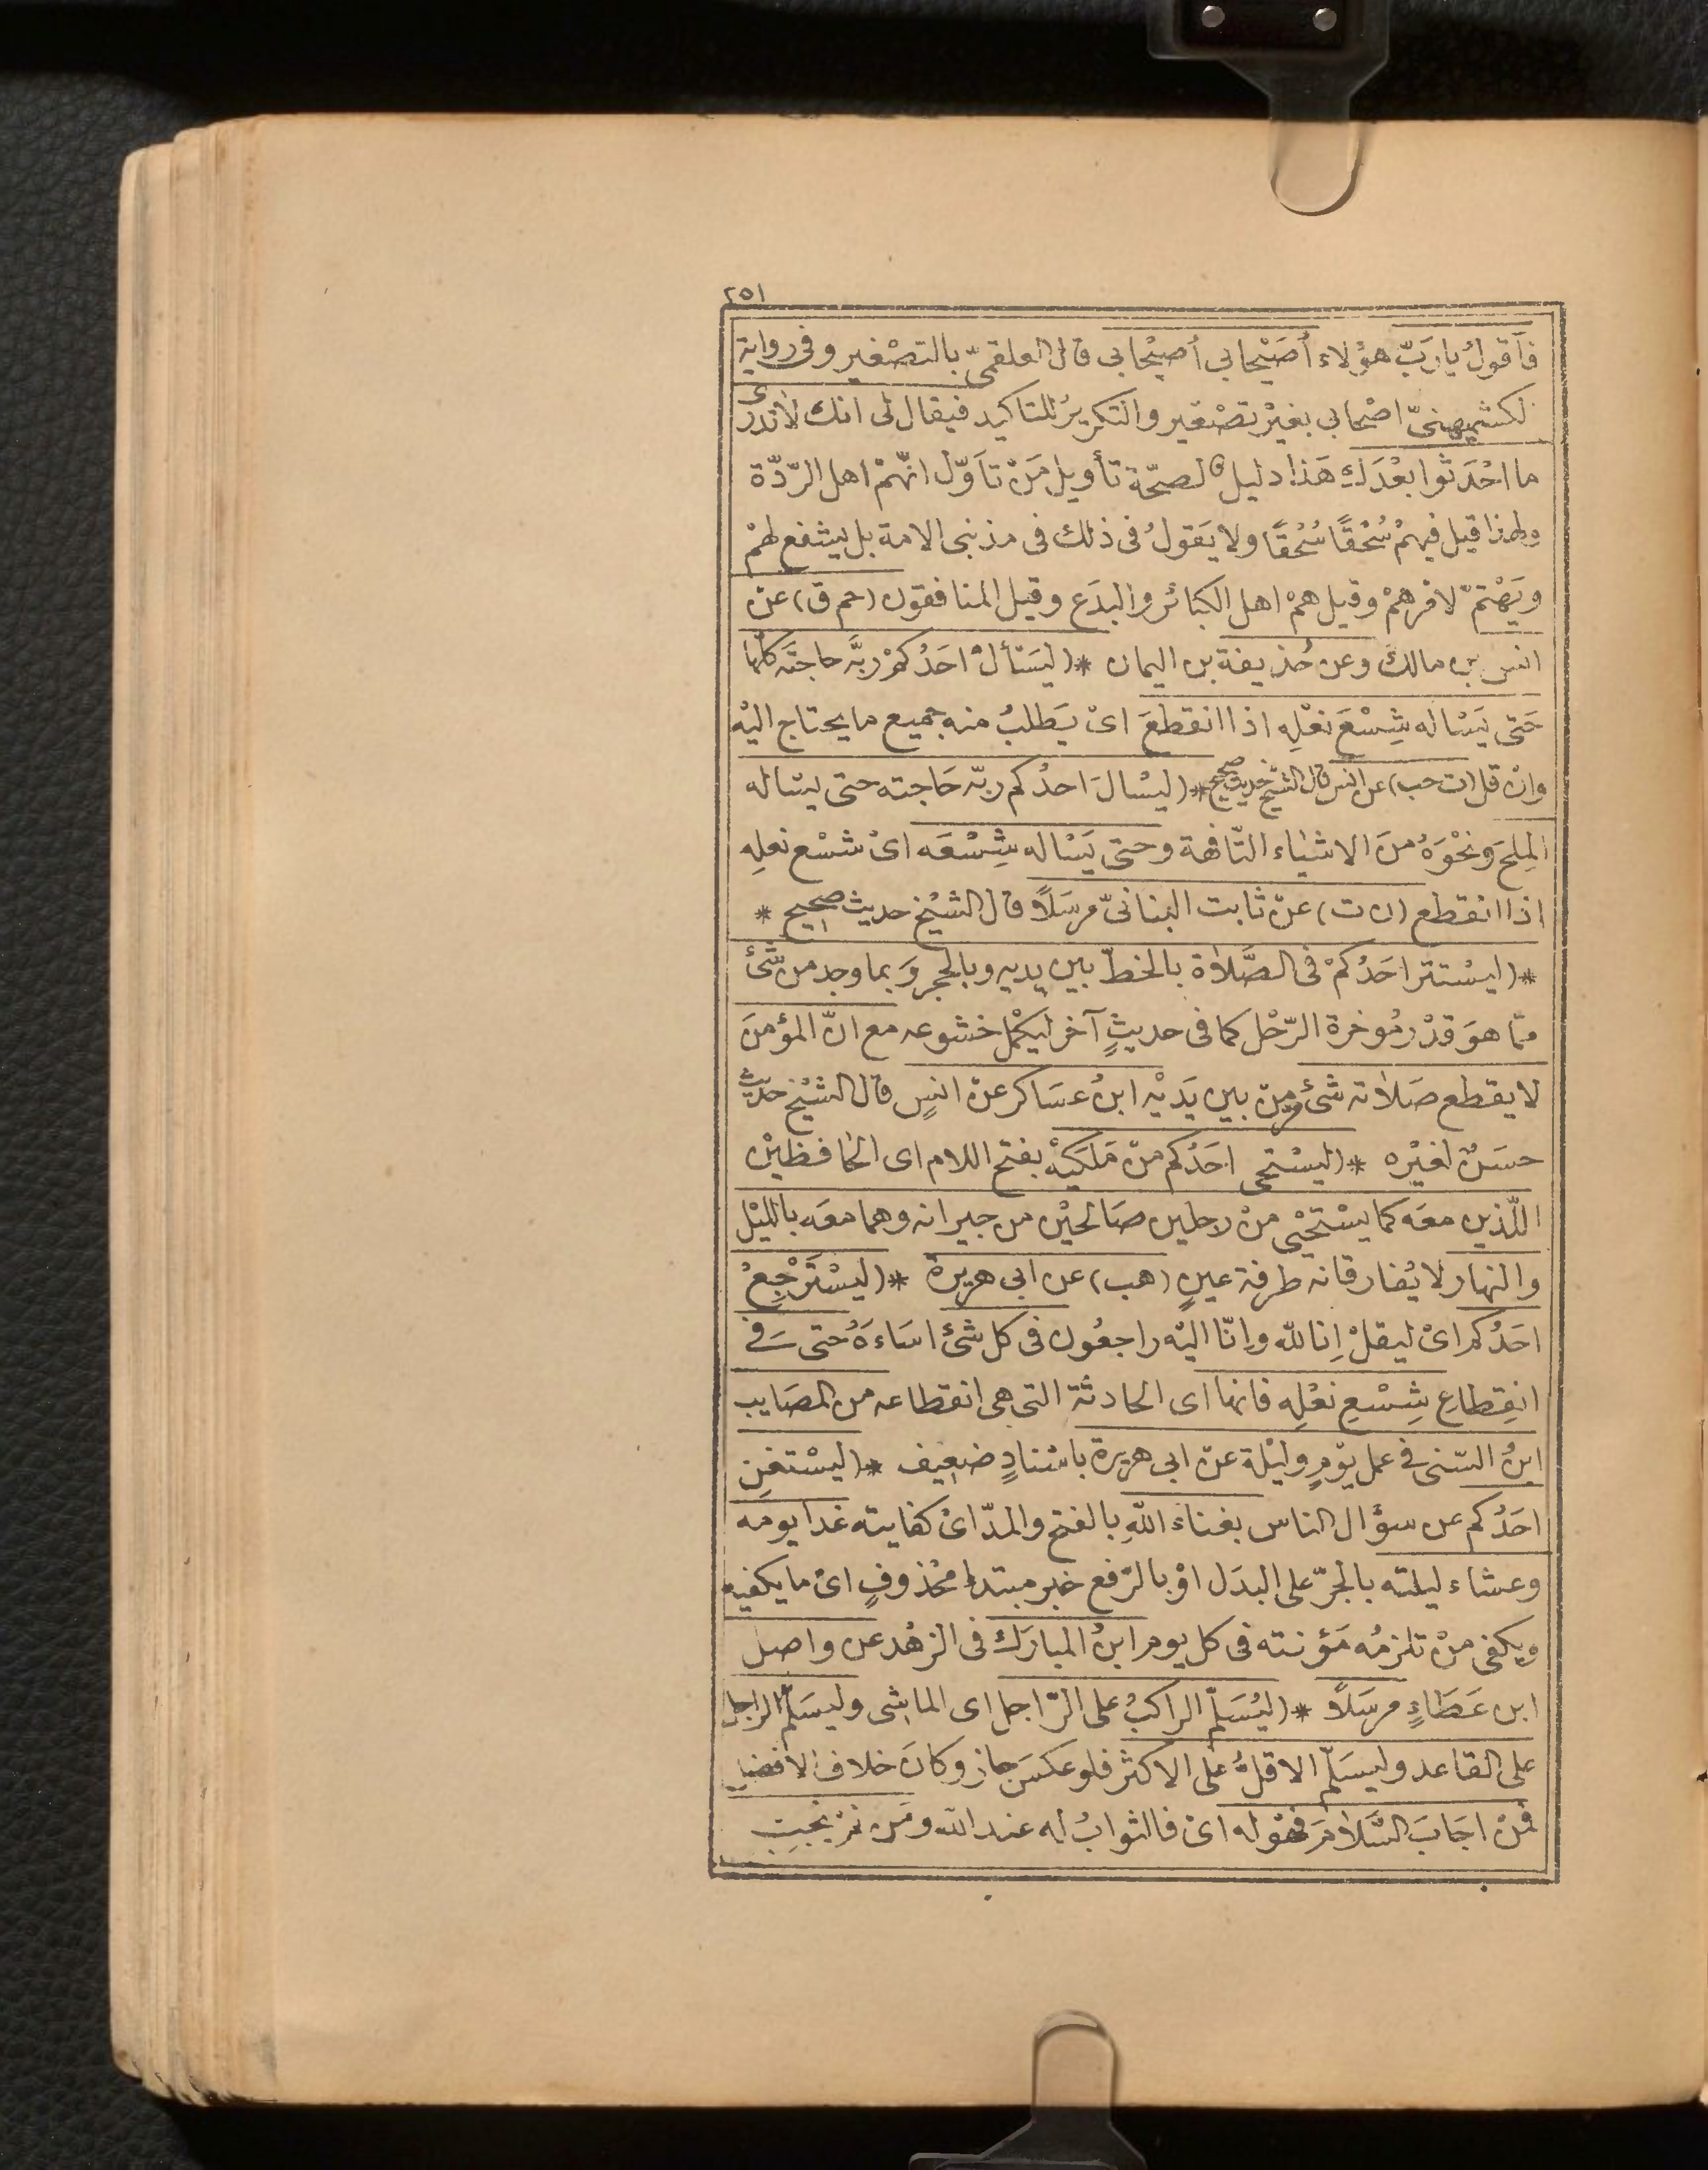 ٢٥١
فاَقولُ يا رَبّ هؤلاء أُصَيْحابي أُصيْحابي قال العلقمىّ بالتصْغير وفى رواية
لكشميهنىّ اصْحابي بغيْر تصْغير والتكريرُ للتاكيد فيقال لى انك لاتدرى
ما احْدَثوا بعْدَك هَذا دليل لصحّة تأويل مَنْ تاَوّل انّهمْ اهل الرّدّة
ولهذا قيل فيهمْ سُحْقًا سُحْقًا ولا يَقولُ فى ذلك فى مذنبى الامة بل يشفع لهمْ
ويَهْتمّ لامرهمْ وقيل همْ اهل الكبائر والبدَع وقيل المنافقون (حم ق) عن
انس بن مالك وعن حُذيفة بن اليمان * (ليَسْألْ احَدُكمْ ربَّه حاجتَه كلّها
حَتى يَسْاله شِسْعَ نعْلِه اذا انقطعَ اىْ يَطلبُ منه جميع ما يحتاج اليْه
وانْ قل (ت حب) عن انس قال الشيخ حديث صحيح * (ليسْالَ احدُكم ربّه حَاجته حتى يسْاله
المِلحَ ونحْوَهُ منَ الاشياء التّافهة وحتى يَسْاله شِسْعَه اىْ شسْع نعلِه
اذا انقطع (ن ت) عنْ ثابت البنانىّ مرسَلاً قال الشيْخ حديث صحيح *
* (ليسْتتر احَدُكمْ فى الصَّلاة بالخطّ بين يديه وبالحجر وَبما وجد من شئ
ممّا هوَ قدْر مُوخرة الرّحْل كما فى حديثٍ آخر ليكمْل خشوعه مع انّ المؤمنَ
لا يقطع صَلاته شئ مرّ من بين يَدَيْه ابنُ عسَاكر عنْ انسٍ قال الشيْخ حديث
حسَنٌ لغيْره * (ليسْتحى احَدُكم منْ مَلَكيْه بفتح اللام اى الحافظيْن
اللّذين معَه كما يسْتحْيى منْ رجلين صَالحيْن من جيرانه وهما معَه بالليْل
والنهار لا يُفارقانه طرفة عينٍ (هب) عن ابى هريرة * (ليسْتَرْجِعْ
احَدُكم اىْ ليقلْ اِنا لله واِنّا اليْه راجعُون فى كل شئ اساءَهُ حتى فى
انقِطاع شِسْعِ نعْلِه فانها اى الحادثة التى هى انقطاعه من المصَايب
ابنُ السّنى فى عمل يوْمٍ وليْلة عنْ ابى هريرة باسْنادٍ ضعيف * (ليسْتغنِ
احَدُكم عن سؤال الناس بغناءَ اللهِ بالفتح والمدّ اىْ كفايته غدا يومه
وعشاء ليلته بالجرّ على البدَل اوْ بالرّفع خبر مبتداء محْذوفٍ اىْ ما يكفيه
ويكفى منْ تلزمُه مَؤنته فى كل يوم ابنُ المبارَك فى الزهْد عن واصل
ابن عَطَاءٍ مرسَلاً * (ليُسَلّم الراكبُ على الرّاجل اى الماشى وليسَلّم الراجل
على القاعد وليسَلّم الاقلُّ على الاكثر فلو عكسَ جاز وكانَ خلاف الافضل
فمنْ اجَابَ السَّلامَ فهوْ له اىْ فالثوابُ له عند الله ومَن لمْ يجبْ